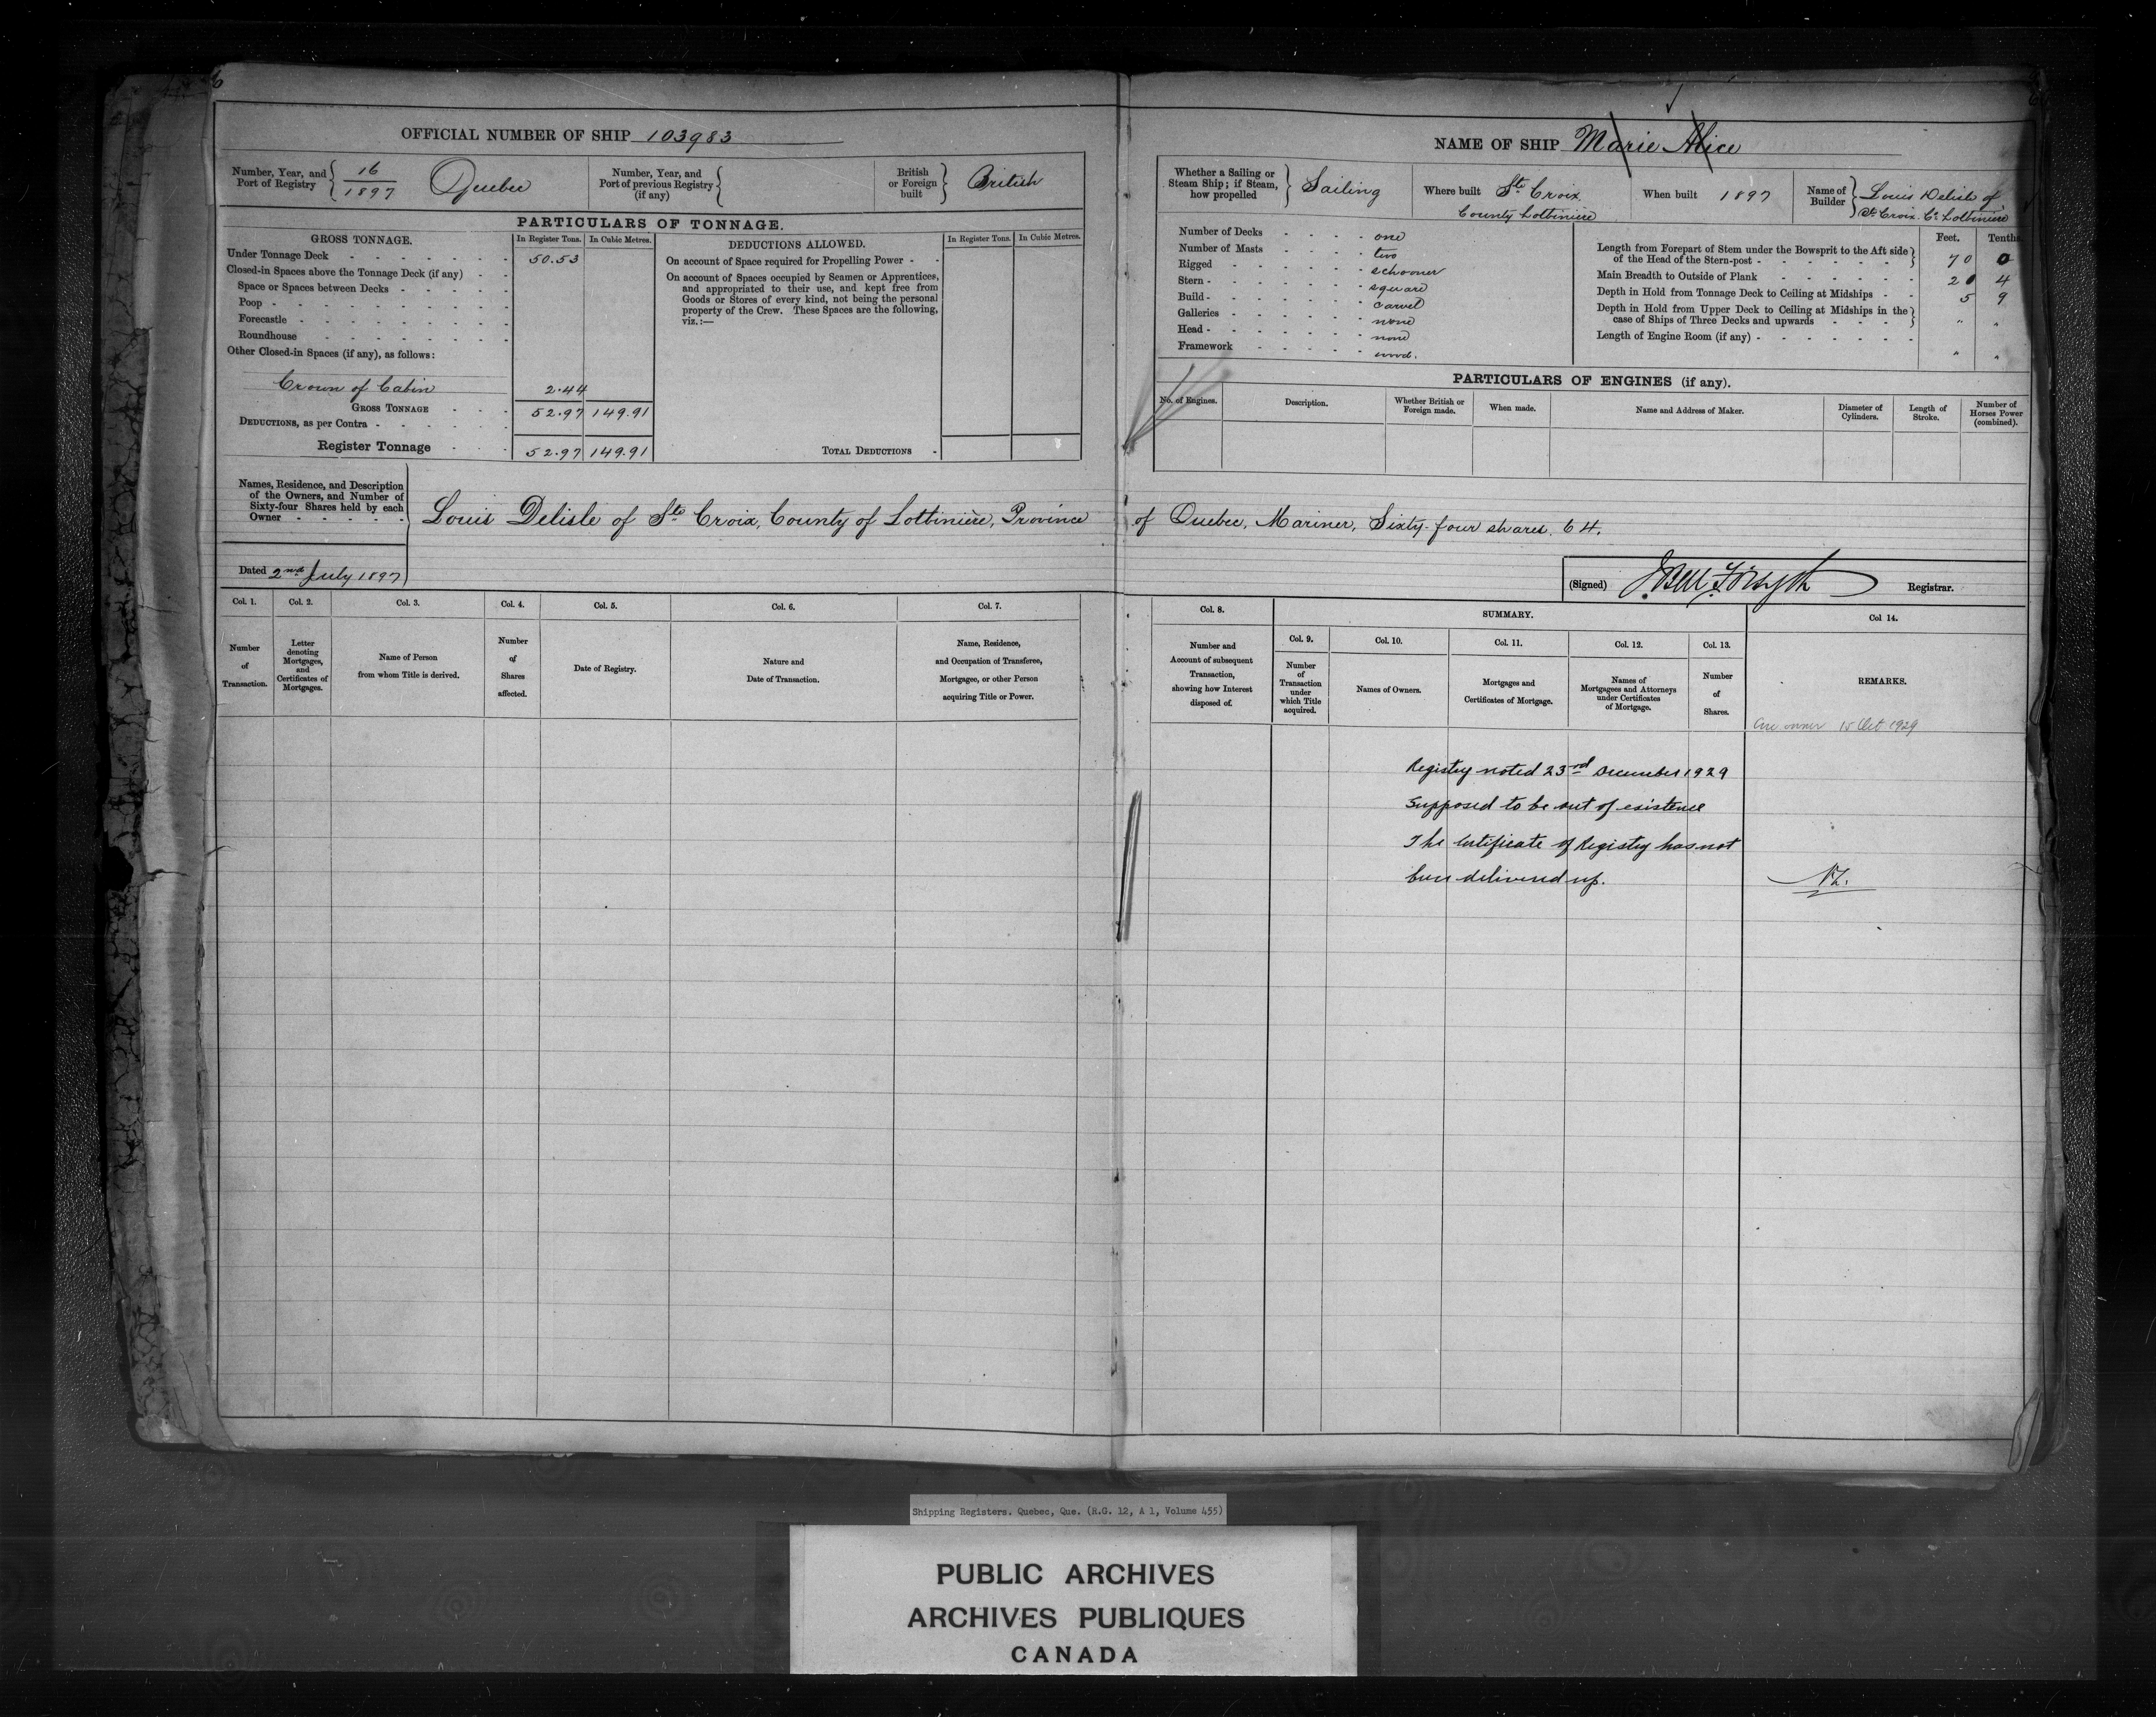 6
OFFICIAL NUMBER OF SHIP 103983
Number, Year, and Port of Registry 16/1897 Quebec
Number, Year, and Port of previous Registry (if any)
British or Foreign built British
PARTICULARS OF TONNAGE.
GROSS TONNAGE. In Register Tons. In Cubic Metres.
Under Tonnage Deck 50.53
Closed-in Spaces above the Tonnage Deck (if any)
Space or Spaces between Decks
Poop
Forecastle
Roundhouse
Other Closed-in Spaces (if any), as follows:
Crown of Cabin 2.44
GROSS TONNAGE 52.97 149.91
DEDUCTIONS, as per Contra
Register Tonnage 52.97 149.91
DEDUCTIONS ALLOWED. In Register Tons. In Cubic Metres.
On account of Space required for Propelling Power
On account of Spaces occupied by Seamen or Apprentices,
and appropriated to their use, and kept free from
Goods or Stores of every kind, not being the personal
property of the Crew. These Spaces are the following,
viz.:—
TOTAL DEDUCTIONS
NAME OF SHIP Marie Alice
Whether a Sailing or Steam Ship; if Steam, how propelled Sailing
Where built Ste Croix County Lotbiniere
When built 1897
Name of Builder Louis Delisle of St. Croix. Co. Lotbiniere
Number of Decks one
Number of Masts two
Rigged schooner
Stern square
Build carvel
Galleries none
Head none
Framework wood.
Feet. Tenths
Length from Forepart of Stem under the Bowsprit to the Aft side
of the Head of the Stern-post 70 0
Main Breadth to Outside of Plank 20 4
Depth in Hold from Tonnage Deck to Ceiling at Midships 5 9
Depth in Hold from Upper Deck to Ceiling at Midships in the
case of Ships of Three Decks and upwards " "
Length of Engine Room (if any) " "
PARTICULARS OF ENGINES (if any).
No. of Engines. Description. Whether British or Foreign made. When made. Name and Address of Maker. Diameter of Cylinders. Length of Stroke. Number of Horses Power (combined).
Names, Residence, and Description
of the Owners, and Number of
Sixty-four Shares held by each
Owner
Louis Delisle of Ste Croix, County of Lotbinière, Province of Quebec, Mariner, Sixty-four shares. 64.
Dated 2nd July 1897
(Signed) J. Bell Forsyth Registrar.
Col. 1. Col. 2. Col. 3. Col. 4. Col. 5. Col. 6. Col. 7.
Number of Transaction.
Letter denoting Mortgages, and Certificates of Mortgages.
Name of Person from whom Title is derived.
Number of Shares affected.
Date of Registry.
Nature and Date of Transaction.
Name, Residence, and Occupation of Transferee, Mortgagee, or other Person acquiring Title or Power.
Col. 8. SUMMARY. Col 14.
Col. 9. Col. 10. Col. 11. Col. 12. Col. 13.
Number and Account of subsequent Transaction, showing how Interest disposed of.
Number of Transaction under which Title acquired.
Names of Owners.
Mortgages and Certificates of Mortgage.
Names of Mortgagees and Attorneys under Certificates of Mortgage.
Number of Shares.
REMARKS.
owner 15 Oct 1929
Registry noted 23rd December 1929
Supposed to be out of existence
The Certificate of Registry has not
been delivered up.
Shipping Registers. Quebec, Que. (R.G. 12, A 1, Volume 455)
PUBLIC ARCHIVES
ARCHIVES PUBLIQUES
CANADA